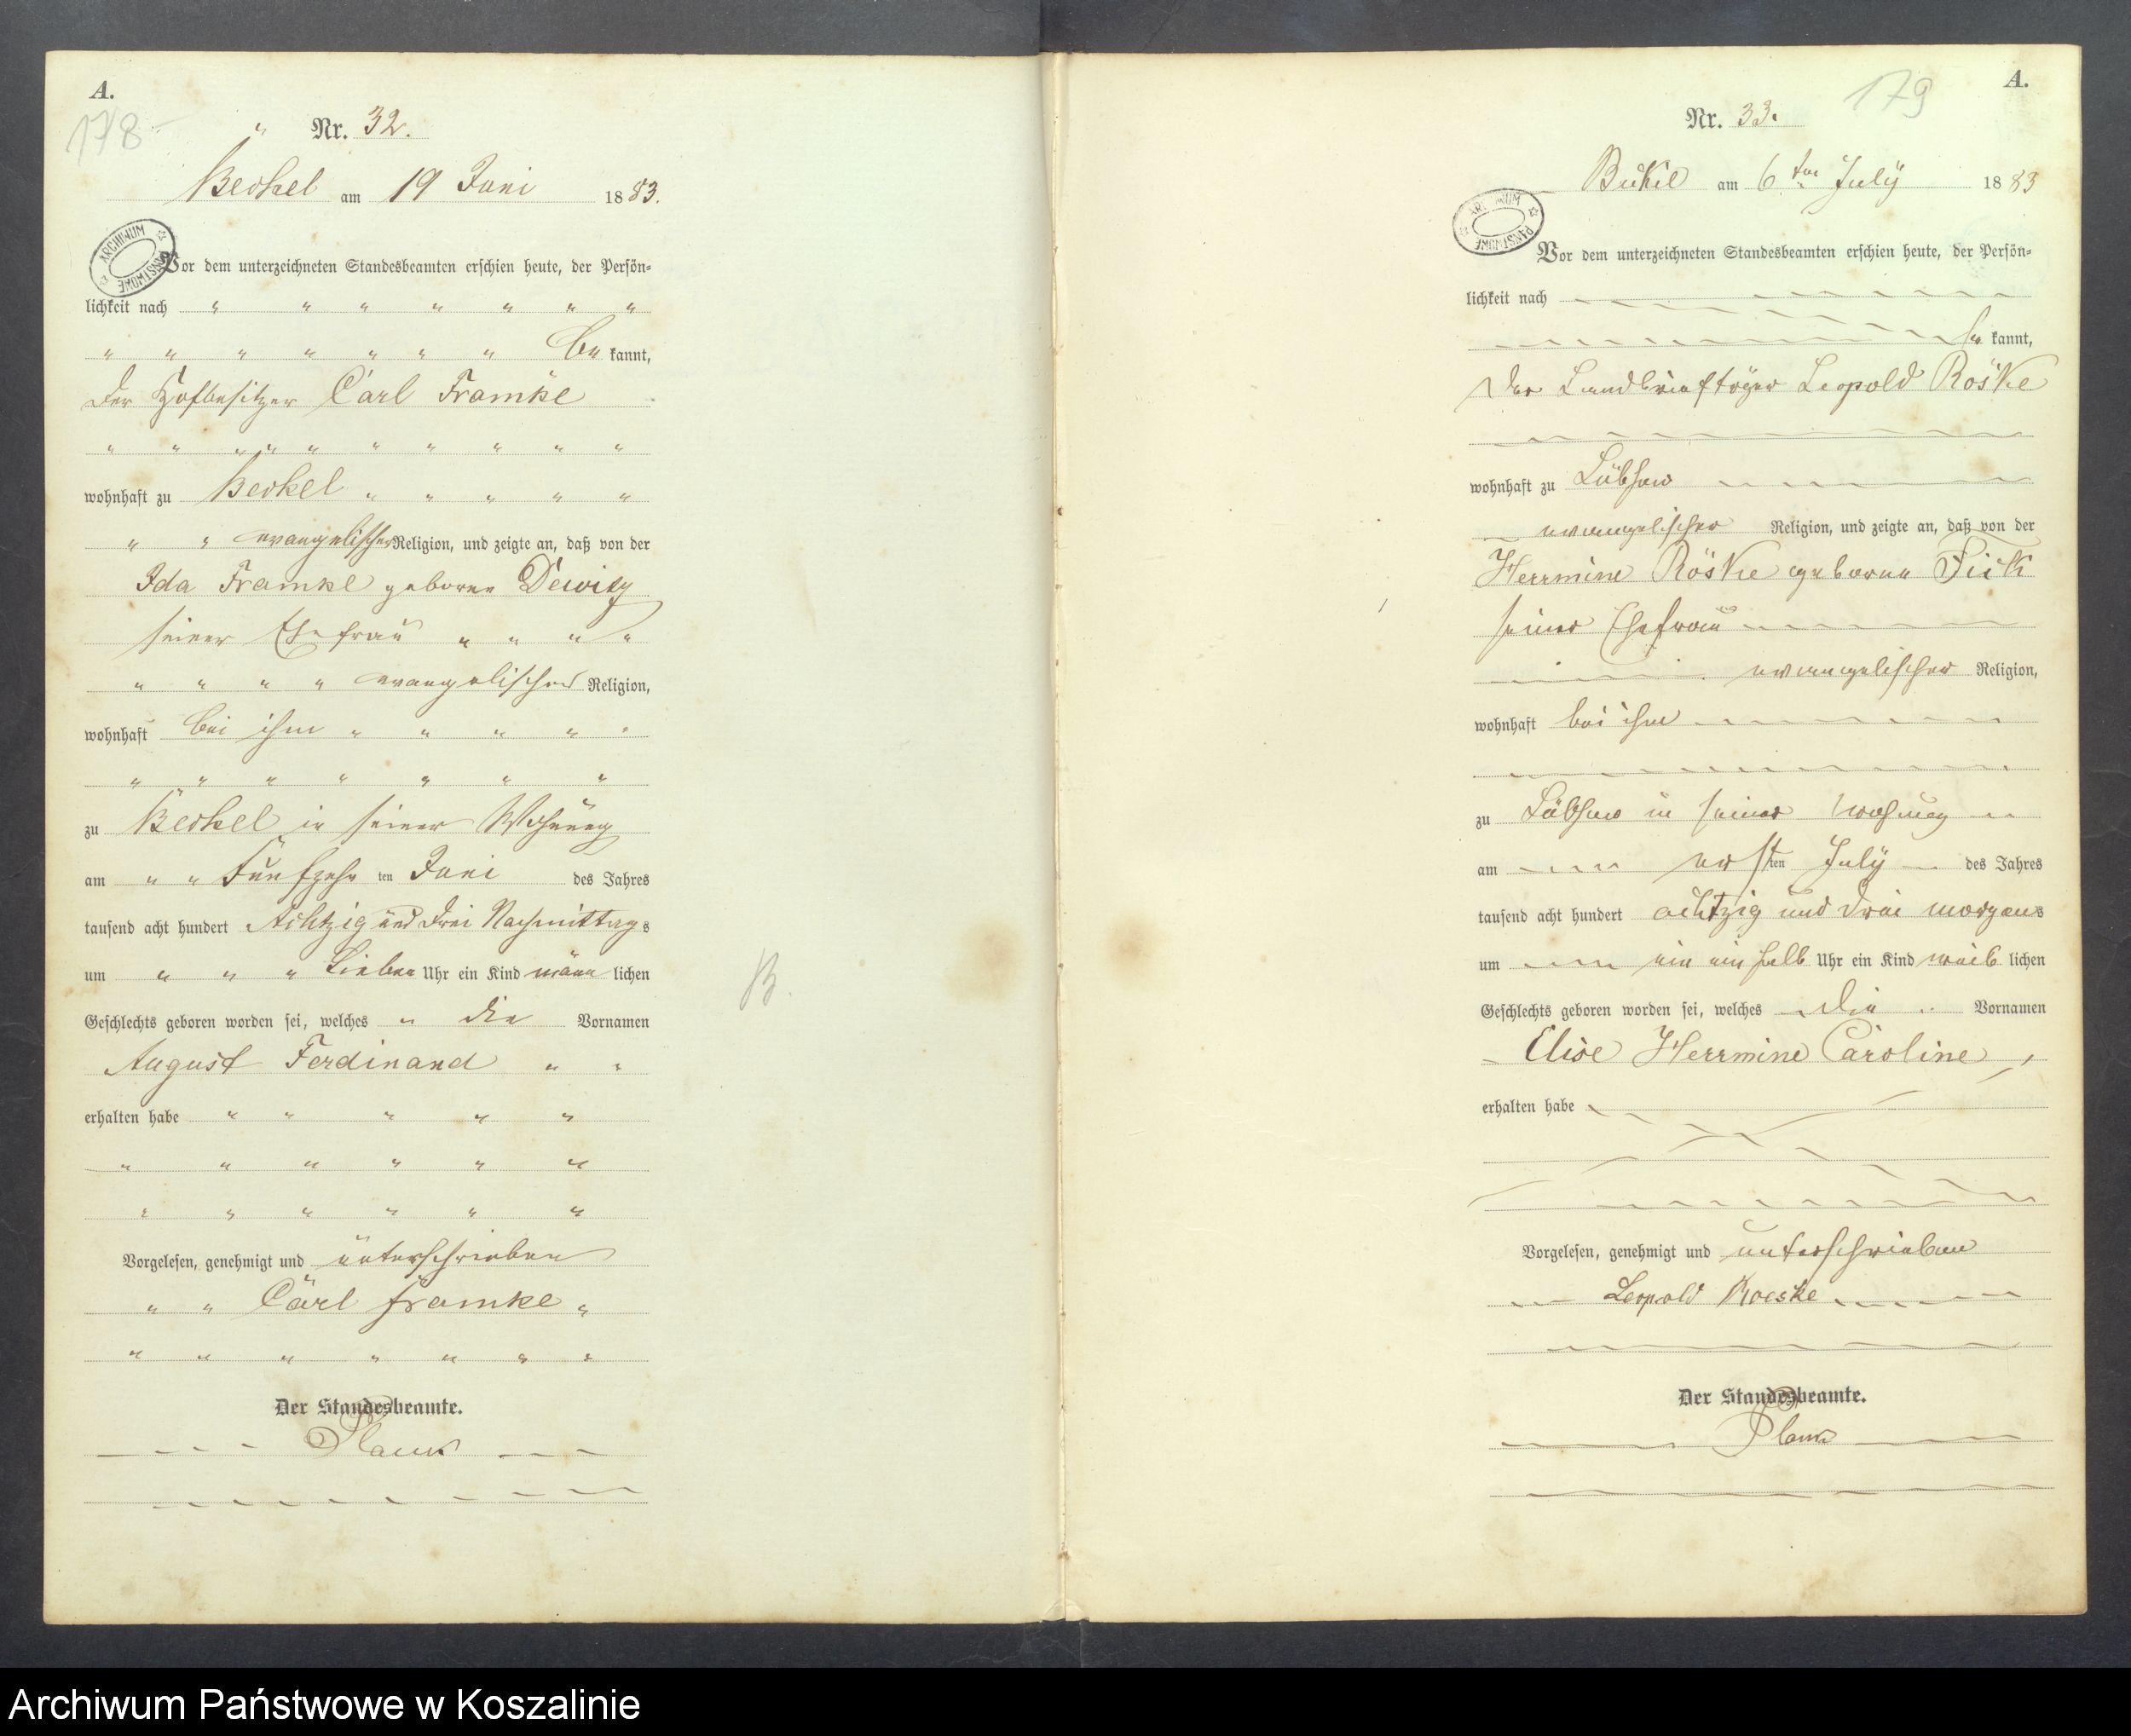 A.
178
Nr. 32.
Beckel am 19 Juni 1883.
ARCHIWUM PAŃSTWOWE
Vor dem unterzeichneten Standesbeamten erschien heute, der Persön-
lichkeit nach " " " " " " "
" " " " " " " be kannt,
der Hofbesitzer Carl Framke
" " " " " " " " " "
wohnhaft zu Beckel " " " " "
" " evangelischer Religion, und zeigte an, daß von der
Ida Framke geborne Dewitz
seiner Ehefrau " " " "
" " " " evangelischer Religion,
wohnhaft bei ihm " " " " "
" " " " " " "
zu Beckel in seiner Wohnung
am " " Fünfzehn ten Juni des Jahres
tausend acht hundert Achtzig und drei Nachmittags
um " " " Sieben Uhr ein Kind männ lichen
Geschlechts geboren worden sei, welches " die Vornamen
August Ferdinand " "
erhalten habe " " " " "
" " " " " "
" " " " " "
Vorgelesen, genehmigt und unterschrieben
" " Carl Framke "
" " " " " " "
Der Standesbeamte.
Plank
B.
179
A.
Nr. 33.
am 6ten July 1883
ARCHIWUM PAŃSTWOWE
Vor dem unterzeichneten Standesbeamten erschien heute, der Persön-
lichkeit nach
be kannt,
der Landbriefträger Leopold Röske
wohnhaft zu Lübsow
evangelischer Religion, und zeigte an, daß von der
Herrmine Röske geborne Fick
seiner Ehefrau
evangelischer Religion,
wohnhaft bei ihm
zu Lübsow in seiner Wohnung
am ersten July des Jahres
tausend acht hundert achtzig und drei morgens
um ein ein halb Uhr ein Kind weib lichen
Geschlechts geboren worden sei, welches die Vornamen
Elise Herrmine Caroline
erhalten habe
Vorgelesen, genehmigt und unterschrieben
Leopold Roeske
Der Standesbeamte.
Plank
Archiwum Państwowe w Koszalinie